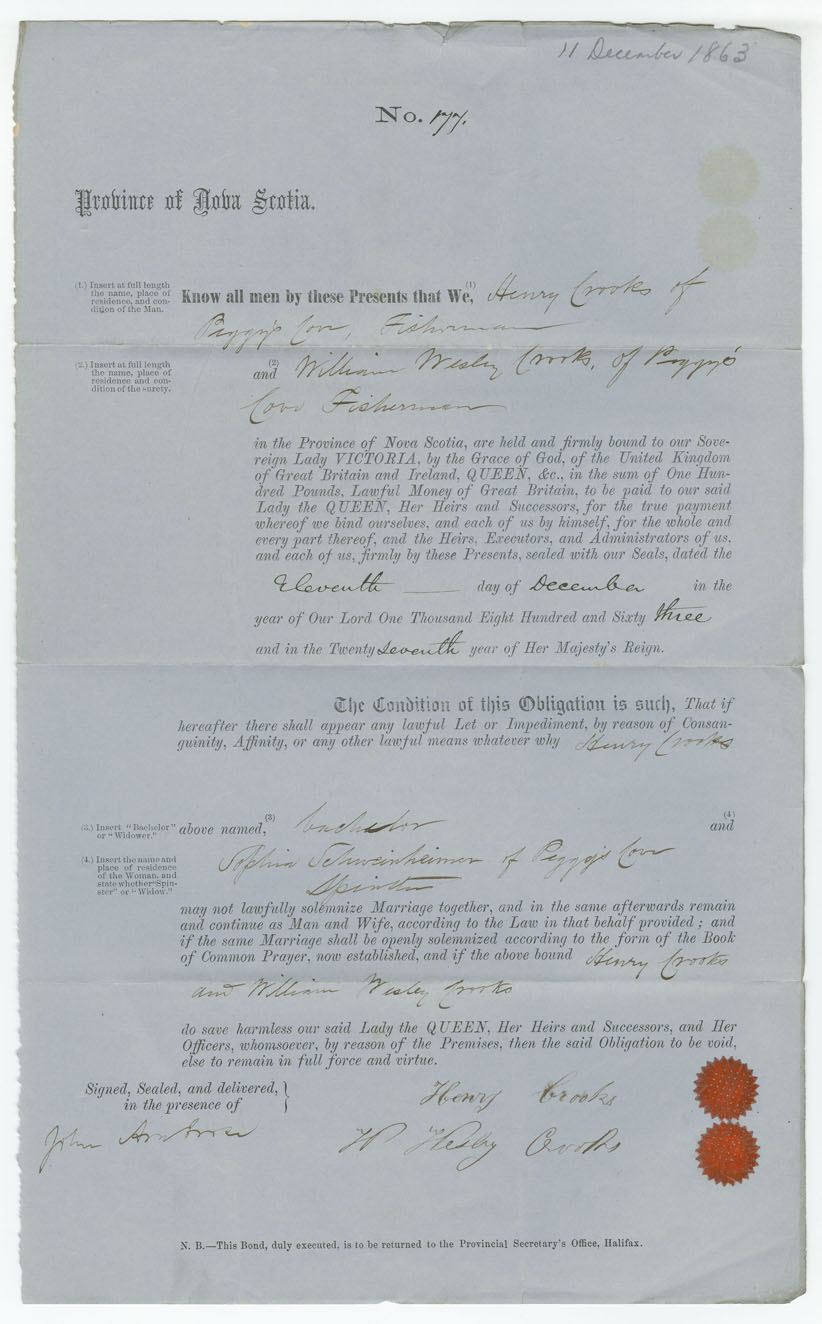 11 December 1863
No. 177.
Province of Nova Scotia.
(1.) Insert at full length
the name, place of
residence, and con-
dition of the Man.
Know all men by these Presents that We, (1) Henry Crooks of
Peggy's Cove, Fisherman
(2.) Insert at full length
the name, place of
residence and con-
dition of the surety.
(2)
and William Wesley Crooks, of Peggy's
Cove Fisherman
in the Province of Nova Scotia, are held and firmly bound to our Sove-
reign Lady VICTORIA, by the Grace of God, of the United Kingdom
of Great Britain and Ireland, QUEEN, &c., in the sum of One Hun-
dred Pounds, Lawful Money of Great Britain, to be paid to our said
Lady the QUEEN, Her Heirs and Successors, for the true payment
whereof we bind ourselves, and each of us by himself, for the whole and
every part thereof, and the Heirs, Executors, and Administrators of us.
and each of us, firmly by these Presents, sealed with our Seals, dated the
Eleventh — day of December in the
year of Our Lord One Thousand Eight Hundred and Sixty three
and in the Twenty seventh year of Her Majesty's Reign.
The Condition of this Obligation is such, That if
hereafter there shall appear any lawful Let or Impediment, by reason of Consan-
guinity, Affinity, or any other lawful means whatever why Henry Crooks
(3.) Insert "Bachelor"
or "Widower."
above named, (3) bachelor (4) and
(4.) Insert the name and
place of residence
of the Woman, and
state whether "Spin-
ster" or "Widow."
Sophia Schweinheimer of Peggy's Cove
Spinster
may not lawfully solemnize Marriage together, and in the same afterwards remain
and continue as Man and Wife, according to the Law in that behalf provided ; and
if the same Marriage shall be openly solemnized according to the form of the Book
of Common Prayer, now established, and if the above bound Henry Crooks
and William Wesley Crooks
do save harmless our said Lady the QUEEN, Her Heirs and Successors, and Her
Officers, whomsoever, by reason of the Premises, then the said Obligation to be void,
else to remain in full force and virtue.
Signed, Sealed, and delivered, }
in the presence of
Henry Crooks
John Ambrose
W Wesley Crooks
N. B.—This Bond, duly executed, is to be returned to the Provincial Secretary's Office, Halifax.